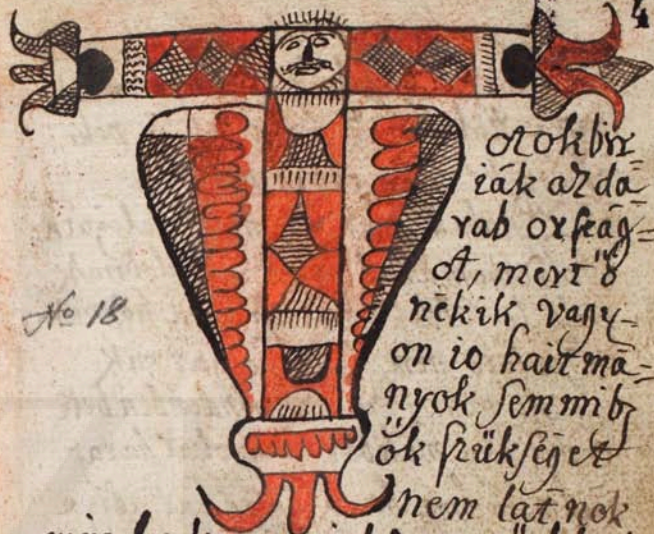 4
otok bir=
iák az da=
rab orſeág=
ot, mert ő
nékik vagy=
on io hairmá=
nyok ſemmibȥ
ők ſzükſéget
nem lat nók
No 18